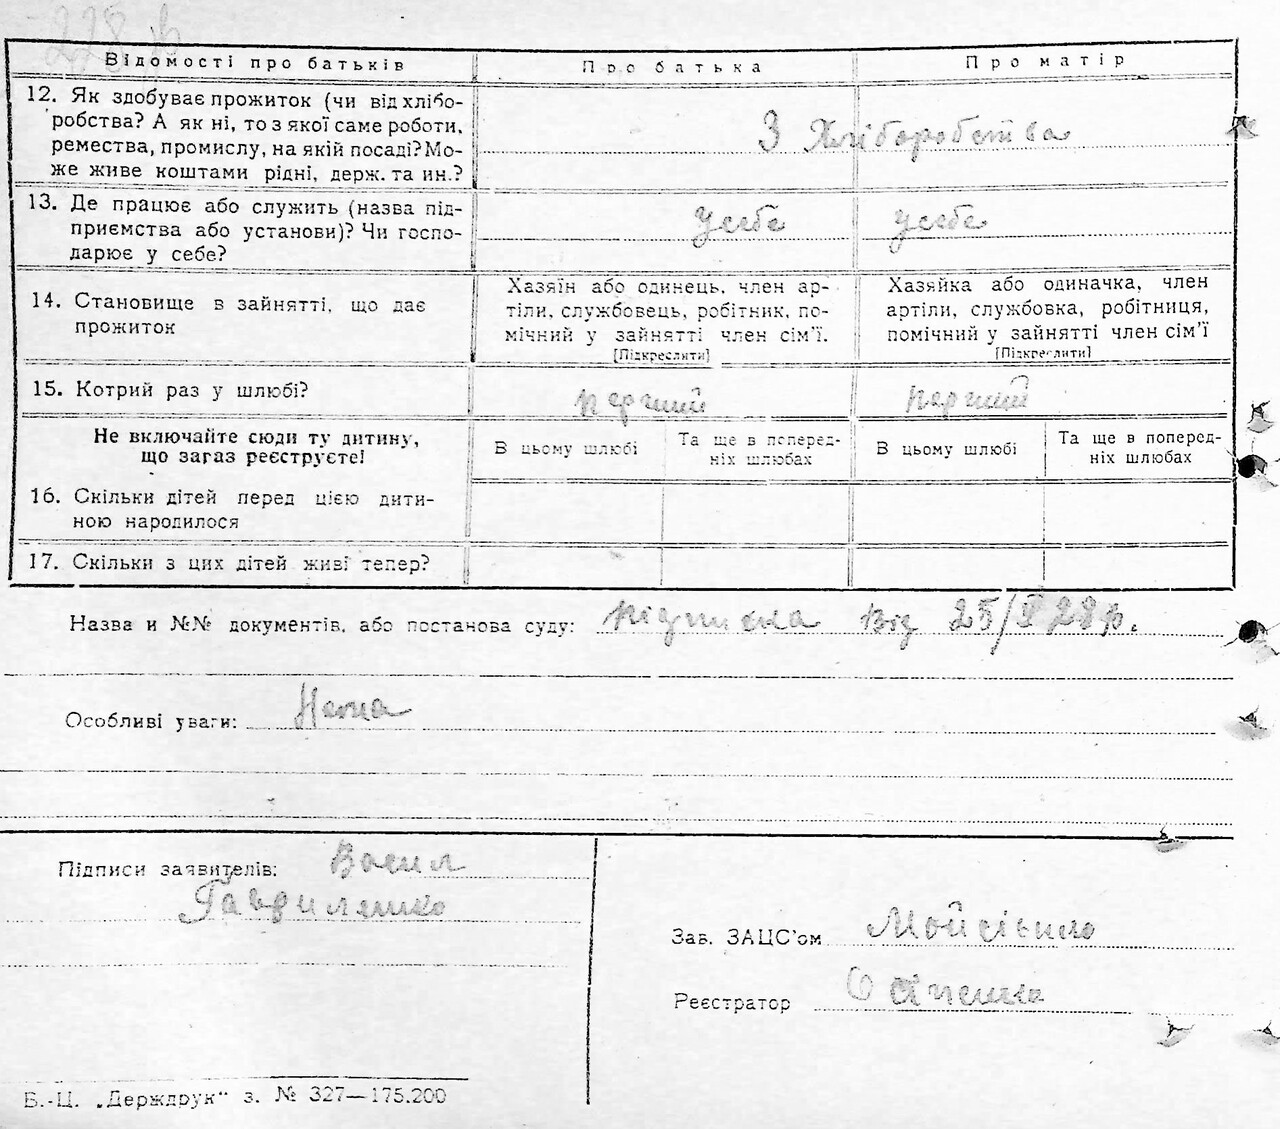 228 р
Відомості про батьків Про батька Про матір
12. Як здобуває прожиток (чи від хлібо-
робства? А як ні, то з якої саме роботи,
ремества, промислу, на якій посаді? Мо-
же живе коштами рідні, держ. та ин.?
З Хліборобства
13. Де працює або служить (назва під-
приємства або установи)? Чи госпо-
дарює у себе?
усебе усебе
14. Становище в зайнятті, що дає
прожиток
Хазяїн або одинець, член ар-
тіли, службовець, робітник, по-
мічний у зайнятті член сім'ї.
[Підкреслити]
Хазяйка або одиначка, член
артіли, службовка, робітниця,
помічний у зайнятті член сім'ї
[Підкреслити]
15. Котрий раз у шлюбі? перший перший
Не включайте сюди ту дитину,
що загаз реєструєте!
В цьому шлюбі
Та ще в поперед-
ніх шлюбах
В цьому шлюбі
Та ще в поперед-
ніх шлюбах
16. Скільки дітей перед цією дити-
ною народилося
17. Скільки з цих дітей живі тепер?
Назва и №№ документів, або постанова суду: підписка від 25/V 28 р.
Особливі уваги: Нема
Підписи заявителів: Васил
Гавриленко
Зав. ЗАЦС'ом
Реєстратор
Б.-Ц. „Держдрук" з. № 327—175.200